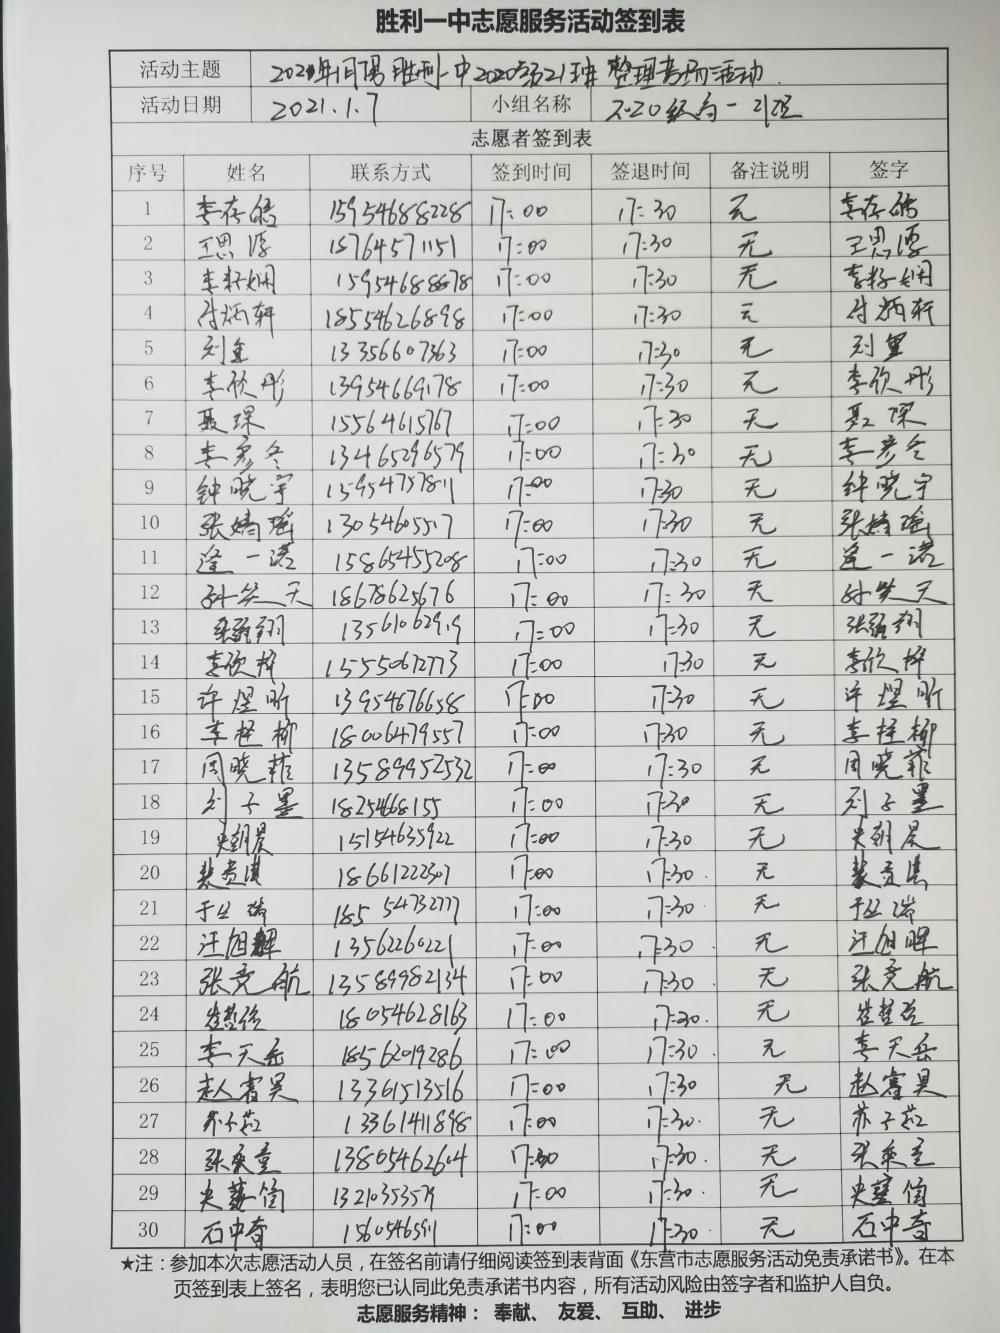 胜利一中志愿服务活动签到表
活动主题 胜利一中2020级21班 整理考场活动
活动日期 2021.1.7 小组名称 2020级高一21班
志愿者签到表
序号 姓名 联系方式 签到时间 签退时间 备注说明 签字
1 李存皓 15954688228 17:00 17:30 无 李存皓
2 王思淳 15764571151 17:00 17:30 无 王思淳
3 李籽娴 15954688878 17:00 17:30 无 李籽娴
4 付炳轩 18554626898 17:00 17:30 无 付炳轩
5 13356607363 17:00 17:30 无
6 李欣彤 13954669178 17:00 17:30 无 李欣彤
7 聂琛 15564615767 17:00 17:30 无 聂琛
8 李彦冬 13465296579 17:00 17:30 无 李彦冬
9 钟晓宇 15954757811 17:00 17:30 无 钟晓宇
10 张婧瑶 13054605517 17:00 17:30 无 张婧瑶
11 逄一诺 15865455208 17:00 17:30 无 逄一诺
12 孙笑天 18678625676 17:00 17:30 无 孙笑天
13 13561062919 17:00 17:30 无
14 李欣梓 15550672773 17:00 17:30 无 李欣梓
15 许煜昕 13954676658 17:00 17:30 无 许煜昕
16 李柽柳 18006479557 17:00 17:30 无 李柽柳
17 周晓菲 13589952532 17:00 17:30 无 周晓菲
18 刘子墨 1825468155 17:00 17:30 无 刘子墨
19 15154635922 17:00 17:30 无
20 18661222507 17:00 17:30. 无
21 18554732777 17:00 17:30. 无
22 汪旭辉 13562260221 17:00 17:30 无 汪旭晖
23 张竞航 13589982134 17:00 17:30 无 张竞航
24 18054628163 17:00 17:30. 无
25 李天岳 18562019286 17:00 17:30. 无 李天岳
26 赵睿昊 13361513516 17:00 17:30 无 赵睿昊
27 13361411898 17:00 17:30. 无
28 张奕童 13805462604 17:00 17:30. 无 张奕童
29 13210353579 17:00 17:30. 无
30 石中奇 15605465911 17:00 17:30 无 石中奇
★注：参加本次志愿活动人员，在签名前请仔细阅读签到表背面《东营市志愿服务活动免责承诺书》。在本
页签到表上签名，表明您已认同此免责承诺书内容，所有活动风险由签字者和监护人自负。
志愿服务精神： 奉献、 友爱、 互助、 进步